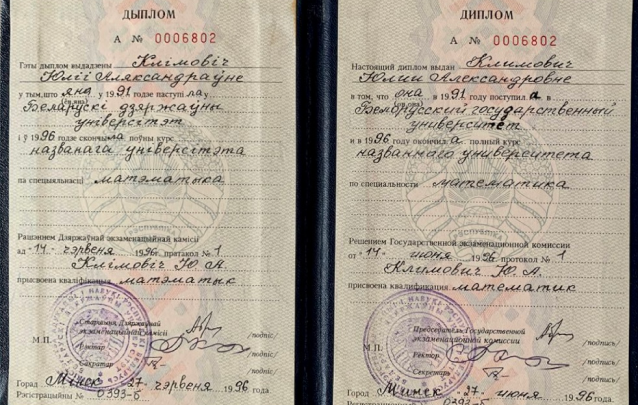 ДЫПЛОМ
А № 0006802
Гэты дыплом выдадзены Клімовіч
Юліі Аляксандраўне
у тым, што яна у 1991 годзе паступіла у
Беларускі дзяржаўны
універсітэт
і ў 1996 годзе скончыла поўны курс
названага універсітэта
па спецыяльнасці матэматыка
Рашэннем Дзяржаўнай экзаменацыйнай камісіі
ад "14" чэрвеня 1996г. пратакол № 1
Клімовіч Ю. А.
прысвоена кваліфікацыя матэматык
Старшыня Дзяржаўнай
экзаменацыйнай камісіі /подпіс/
М.П. Рэктар /подпіс/
Сакратар /подпіс/
Горад Мінск 27 чэрвеня 1996 года.
Рэгістрацыйны № 0393-б
ДИПЛОМ
А № 0006802
Настоящий диплом выдан Климович
Юлии Александровне
в том, что она в 1991 году поступила в
Белорусский государственный
университет
и в 1996 году окончила полный курс
названного университета
по специальности математика
Решением Государственной экзаменационной комиссии
от "14" июня 1996г. протокол № 1
Климович Ю. А.
присвоена квалификация математик
Председатель Государственной
экзаменационной комиссии /подпись/
М.П. Ректор /подпись/
Секретарь /подпись/
Город Минск 27 июня 1996 года.
0393-б